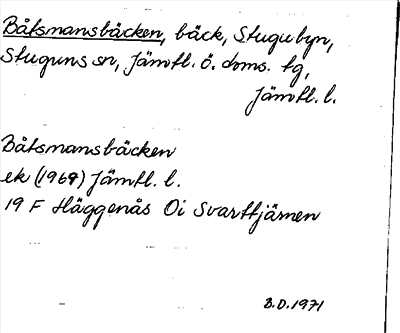 Båtsmansbäcken, bäck, Stugubyn,
Stuguns sn, Jämtl. ö. doms. tg,
Jämtl. l.
Båtsmansbäcken
ek (1969) Jämtl. l.
19 F Häggenås Oi Svarttjärnen
B.O. 1971